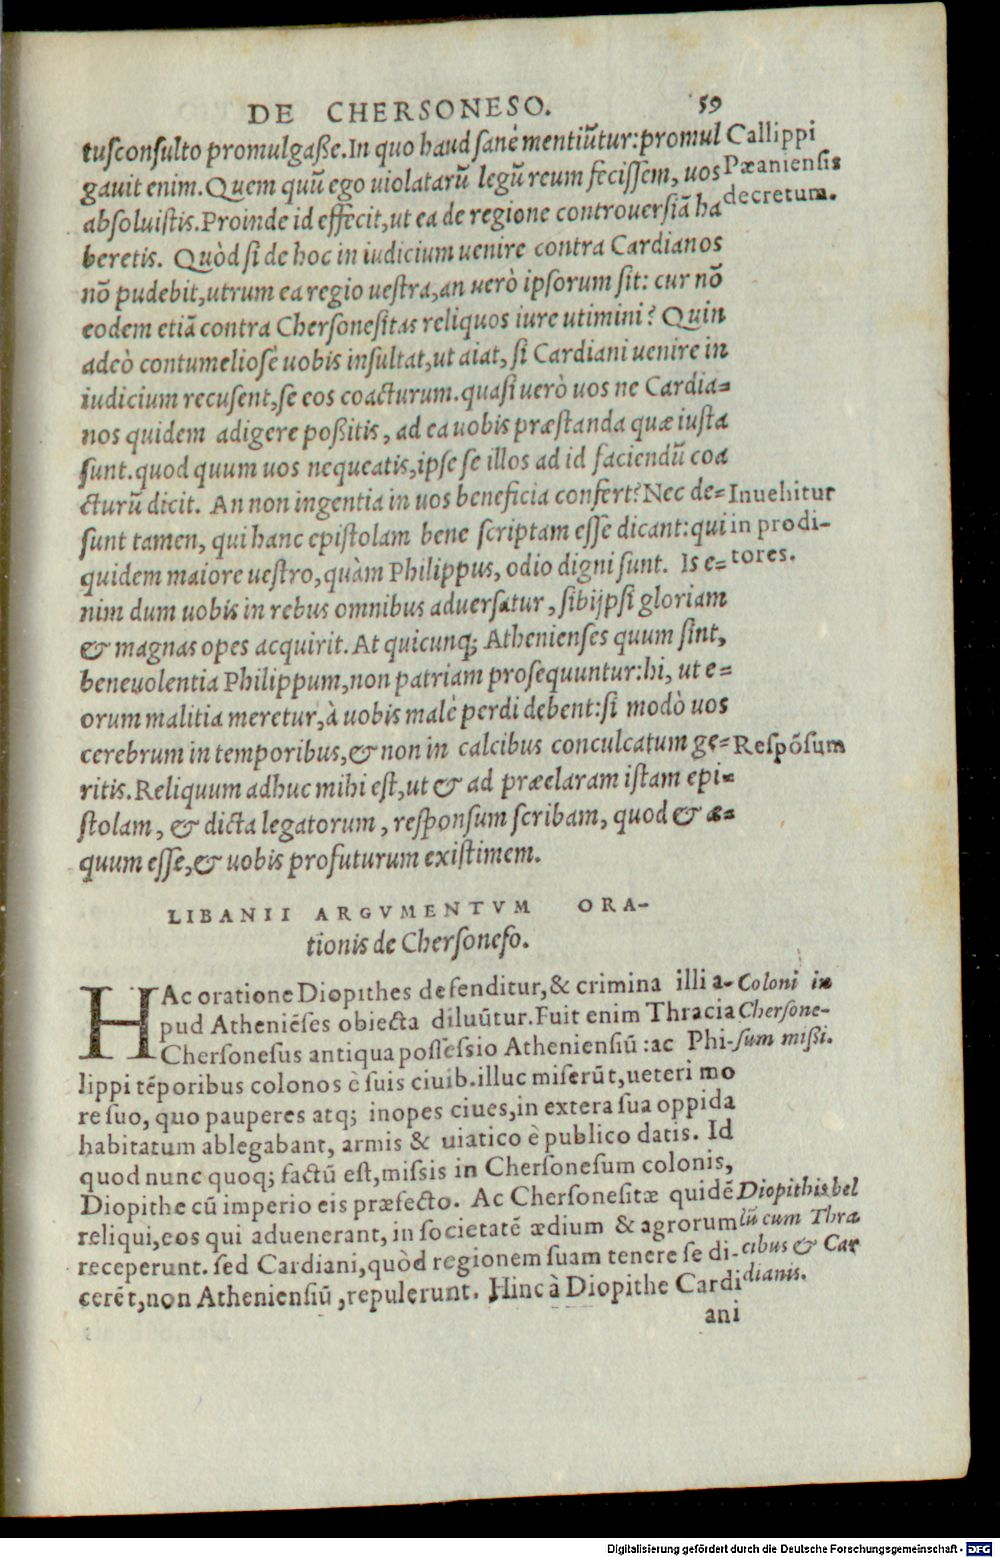 DE CHERSONESO. 59
tusconsulto promulgaße. In quo haud sanè mentiũtur: promul
gauit enim. Quem quũ ego uiolatarũ legũ reum fecissem, uos
absoluistis. Proinde id effecit, ut ea de regione controuersiã ha
beretis. Quòd si de hoc in iudicium uenire contra Cardianos
nõ pudebit, utrum ea regio uestra, an uerò ipsorum sit: cur nõ
eodem etiã contra Chersonesitas reliquos iure utimini? Quin
adeò contumeliosè uobis insultat, ut aiat, si Cardiani uenire in
iudicium recusent, se eos coacturum. quasi uerò uos ne Cardia=
nos quidem adigere poßitis, ad ea uobis præstanda quæ iusta
sunt. quod quum uos nequeatis, ipse se illos ad id faciendũ coa
cturũ dicit. An non ingentia in uos beneficia confert? Nec de=
sunt tamen, qui hanc epistolam bene scriptam esse dicant: qui
quidem maiore uestro, quàm Philippus, odio digni sunt. Is e=
nim dum uobis in rebus omnibus aduersatur, sibijpsi gloriam
& magnas opes acquirit. At quicunq; Athenienses quum sint,
beneuolentia Philippum, non patriam prosequuntur: hi, ut e=
orum malitia meretur, à uobis malè perdi debent: si modò uos
cerebrum in temporibus, & non in calcibus conculcatum ge=
ritis. Reliquum adhuc mihi est, ut & ad præclaram istam epi=
stolam, & dicta legatorum, responsum scribam, quod & æ=
quum esse, & uobis profuturum existimem.
Callippi
Pæaniensis
decretum.
Inuehitur
in prodi-
tores.
Respõsum
LIBANII ARGVMENTVM ORA-
tionis de Chersoneso.
HAc oratione Diopithes defenditur, & crimina illi a-
pud Atheniẽses obiecta diluũtur. Fuit enim Thracia
Chersonesus antiqua possessio Atheniensiũ: ac Phi-
lippi tẽporibus colonos è suis ciuib. illuc miserũt, ueteri mo
re suo, quo pauperes atq; inopes ciues, in extera sua oppida
habitatum ablegabant, armis & uiatico è publico datis. Id
quod nunc quoq; factũ est, missis in Chersonesum colonis,
Diopithe cũ imperio eis præfecto. Ac Chersonesitæ quidẽ
reliqui, eos qui aduenerant, in societatẽ ædium & agrorum
receperunt. sed Cardiani, quòd regionem suam tenere se di-
cerẽt, non Atheniensiũ, repulerunt. Hinc à Diopithe Cardi
ani
Coloni in
Chersone-
sum mißi.
Diopithis bel
lũ cum Thra
cibus & Car
dianis.
Digitalisierung gefördert durch die Deutsche Forschungsgemeinschaft - DFG